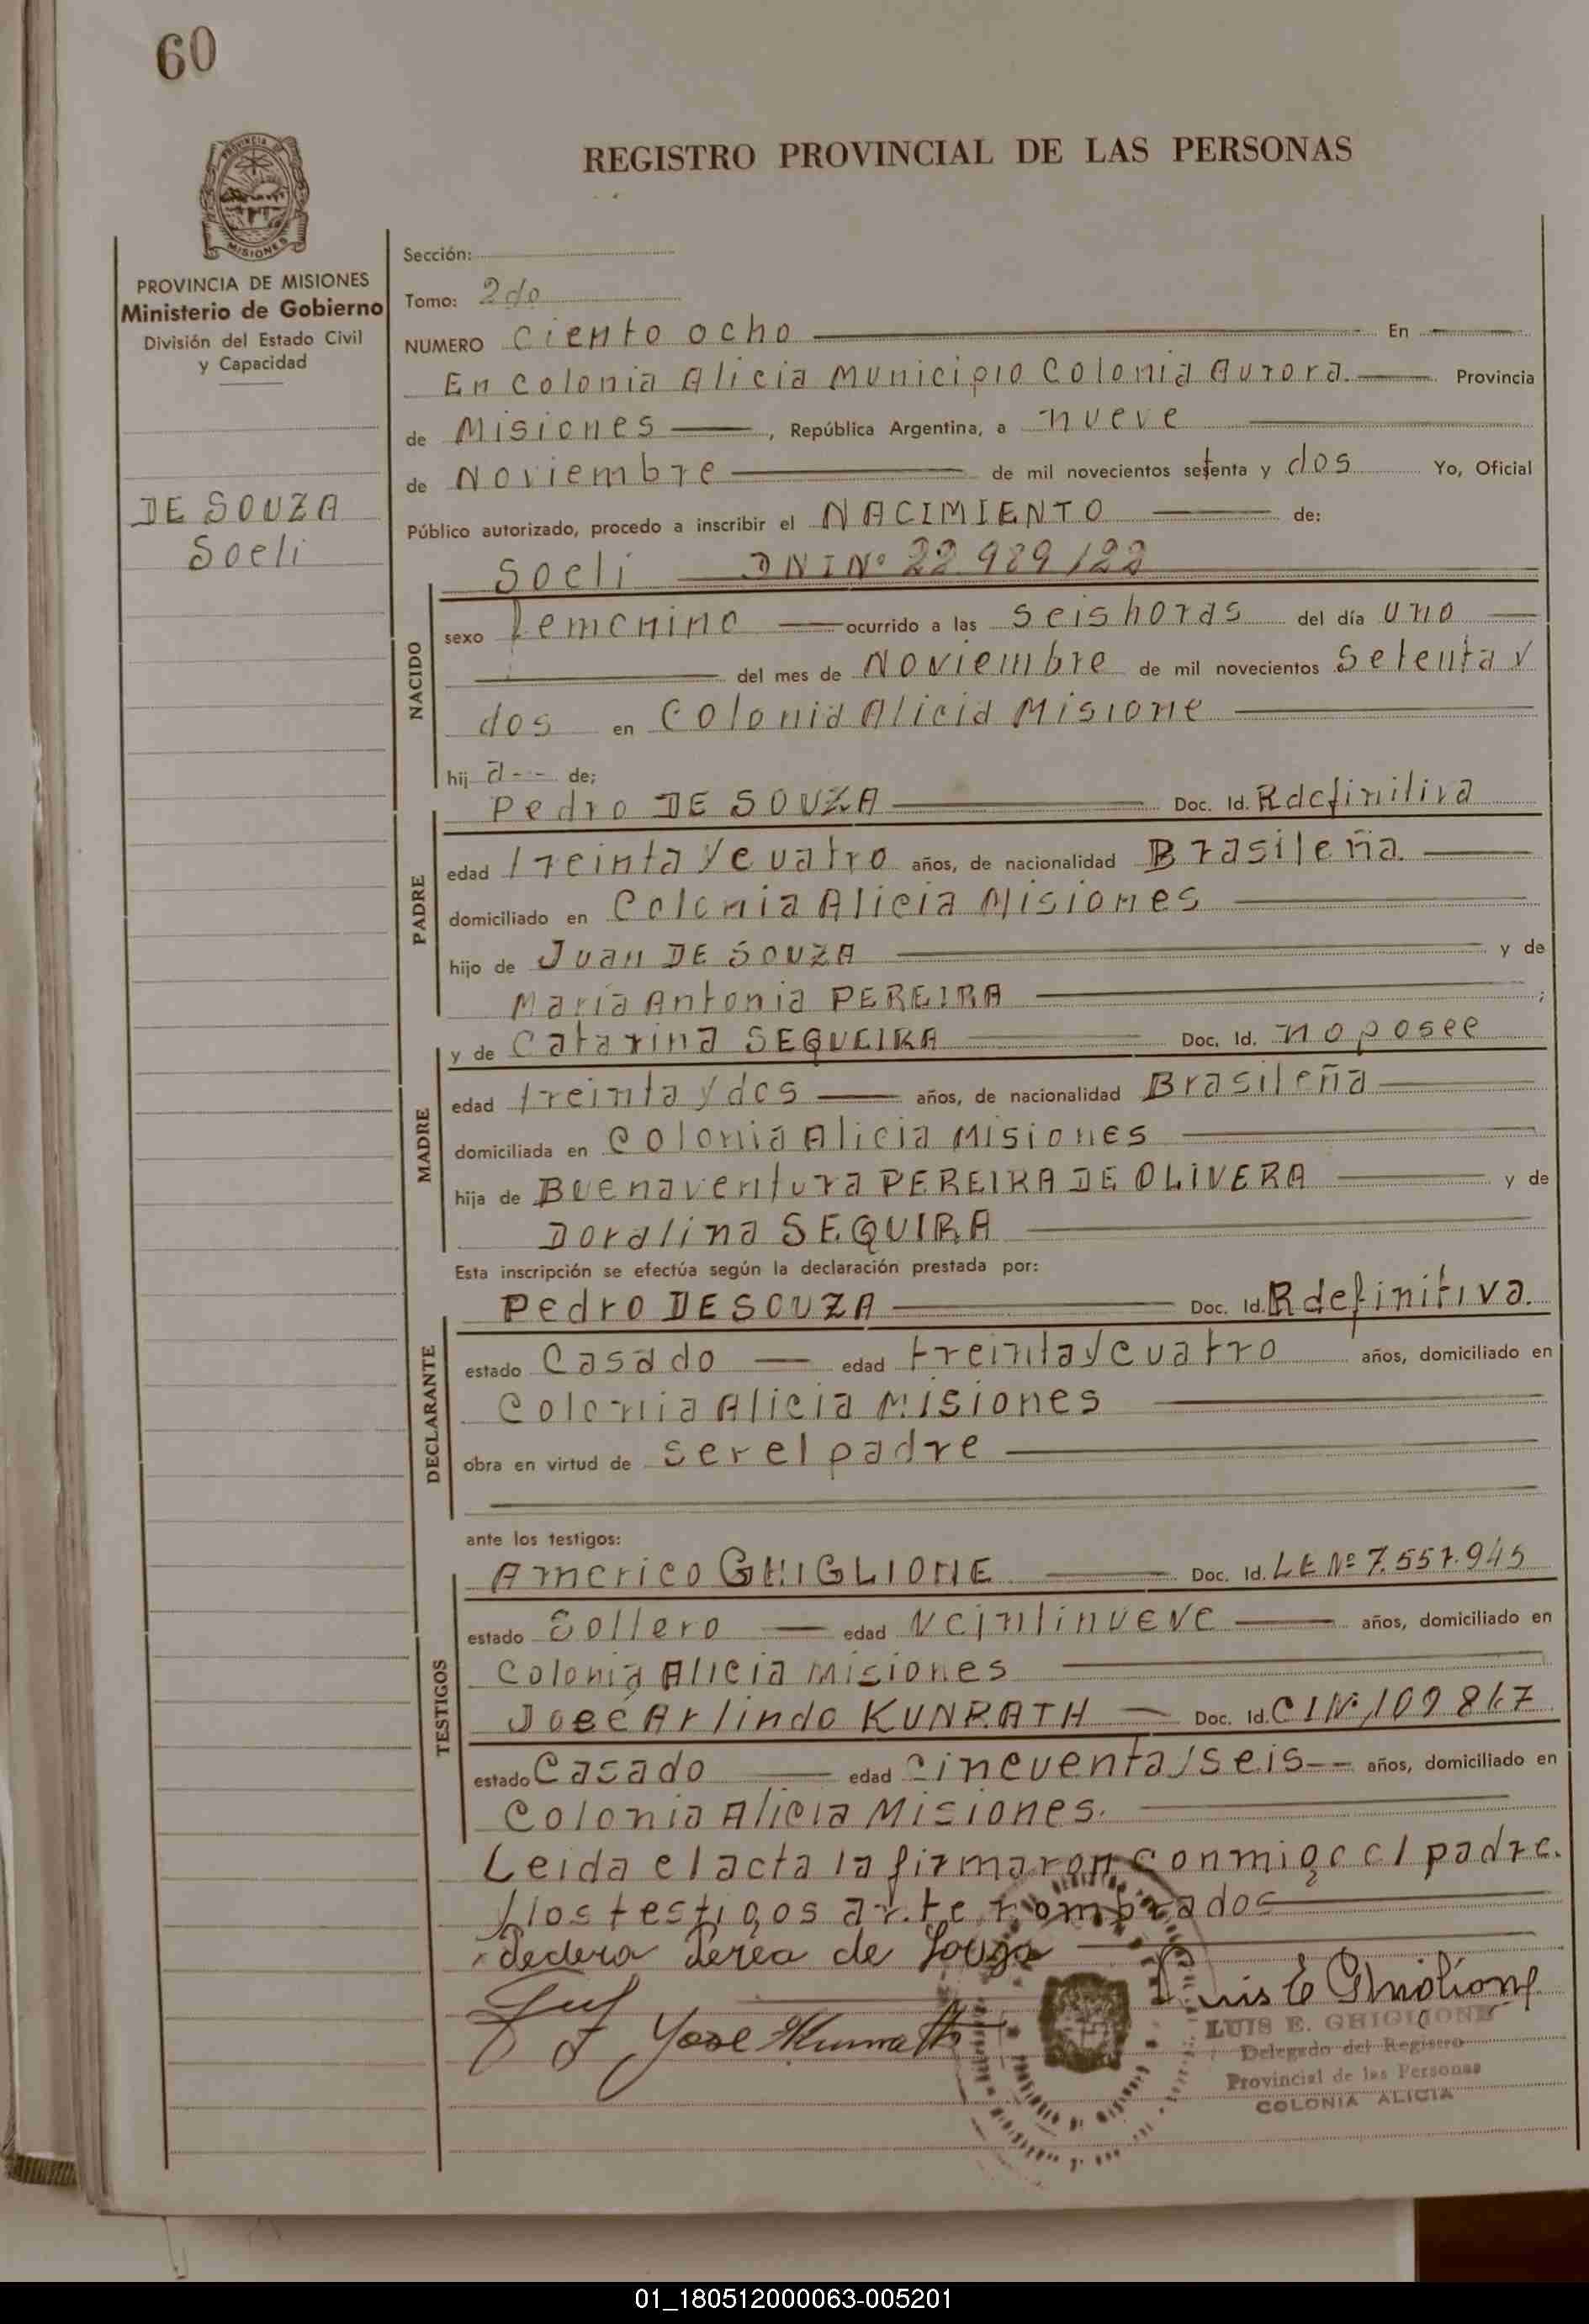 60
REGISTRO PROVINCIAL DE LAS PERSONAS
PROVINCIA DE MISIONES
Ministerio de Gobierno
División del Estado Civil
y Capacidad
DE SOUZA
Soeli
Sección:
Tomo: 2do
NUMERO ciento ocho En
En Colonia Alicia Municipio Colonia Aurora. Provincia
de Misiones, República Argentina, a nueve
de Noviembre de mil novecientos setenta y dos Yo, Oficial
Público autorizado, procedo a inscribir el NACIMIENTO de:
Soeli DNI Nº 22 989 122
NACIDO
sexo femenino ocurrido a las seis horas del día uno
del mes de Noviembre de mil novecientos Setenta y
dos en Colonia Alicia Misione
hij a-- de;
PADRE
Pedro DE SOUZA Doc. Id. R definitiva
edad treinta y cuatro años, de nacionalidad Brasileña.
domiciliado en Colonia Alicia Misiones
hijo de Juan DE SOUZA y de
María Antonia PEREIRA ;
MADRE
y de Catarina SEQUEIRA Doc. Id. no posee
edad treinta y dos años, de nacionalidad Brasileña
domiciliada en Colonia Alicia Misiones
hija de Buenaventura PEREIRA DE OLIVERA y de
Doralina SEQUIRA
Esta inscripción se efectúa según la declaración prestada por:
DECLARANTE
Pedro DE SOUZA Doc. Id. R definitiva.
estado Casado edad treinta y cuatro años, domiciliado en
Colonia Alicia Misiones
obra en virtud de ser el padre
ante los testigos:
TESTIGOS
Americo GHIGLIONE Doc. Id. LE Nº 7.557.945
estado Soltero edad veintinueve años, domiciliado en
Colonia Alicia Misiones
José Arlindo KUNRATH Doc. Id. CI Nº 109 867
estado Casado edad cincuenta y seis-- años, domiciliado en
Colonia Alicia Misiones.
Leida el acta la firmaron conmigo el padre.
y los testigos ante nombrados
de Souza
Jose Kunrath
Luis E Ghiglione
LUIS E. GHIGLIONE
Delegado del Registro
Provincial de las Personas
COLONIA ALICIA
01_180512000063-005201